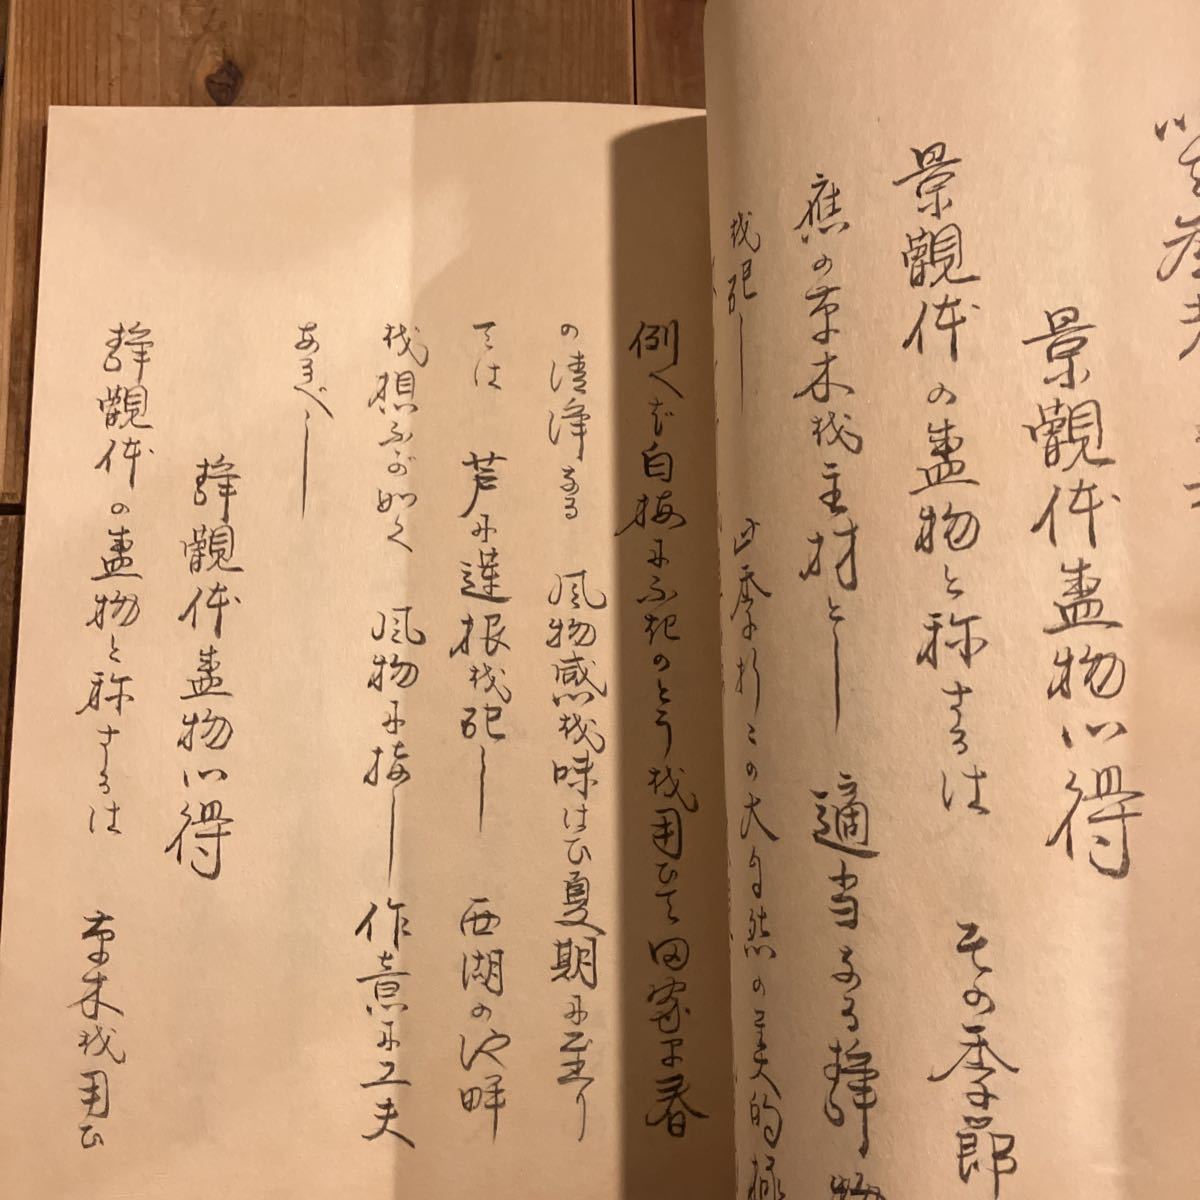 景観体盛物心得
景観体の盛物と称するは 其の季節
應の草木を主材とし 適当なる静物
を配し 四季折々の大自然の美的極
例へば白梅に不老のとう を用ひて田家に春
の清浄なる 風物感を味はひ夏期に至り
ては 芦に蓮根を配し 西湖の池畔
を想ふが如く 風物に接し 作意に工夫
あるべし
静観体盛物心得
静観体の盛物と称するは 草木を用ひ